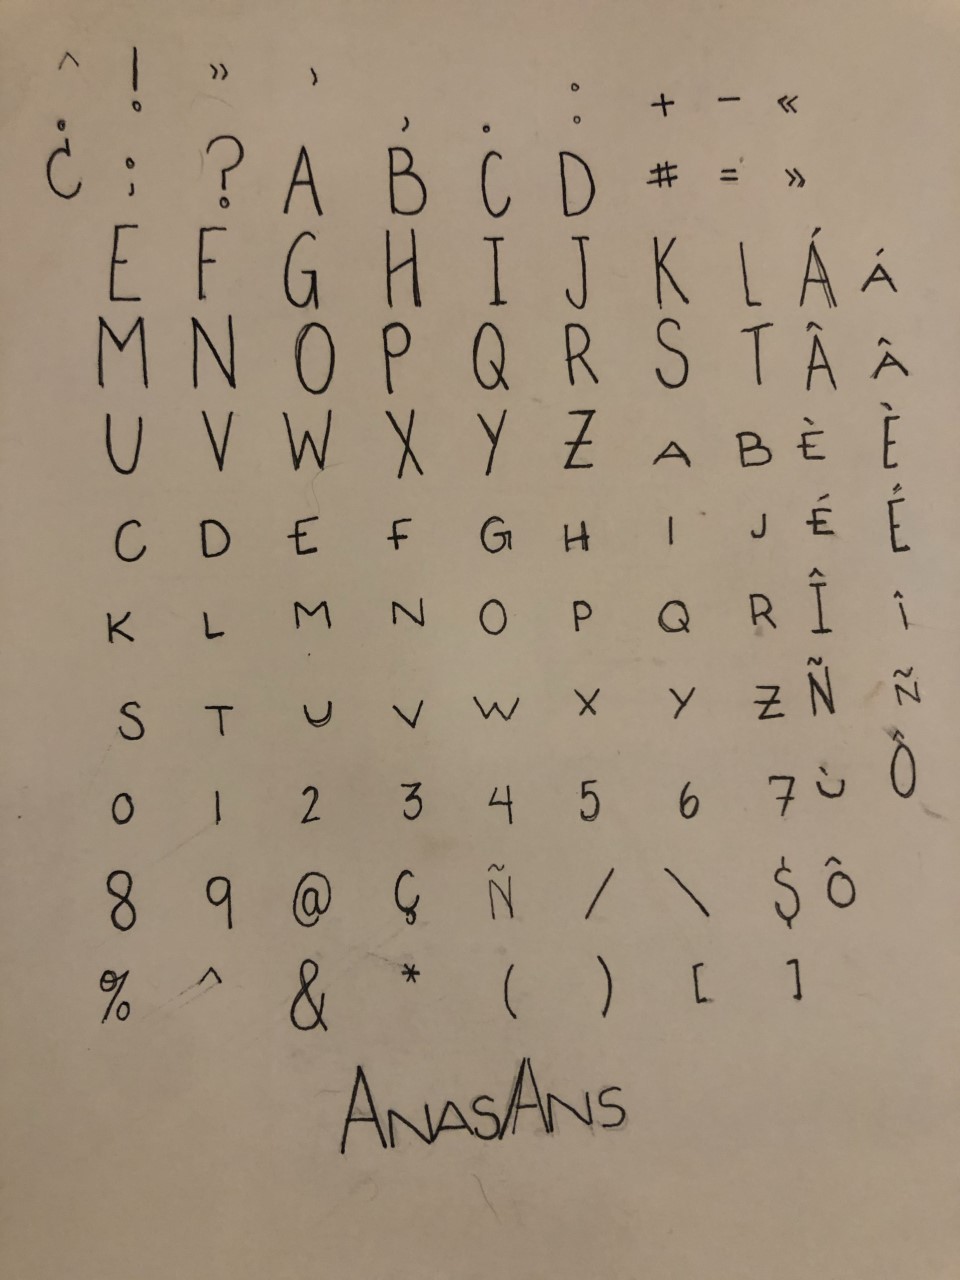 ^ ! » ’ , . : + - «
¿ ; ? A B C D # = »
E F G H I J K L Á Á
M N O P Q R S T Â Â
U V W X Y Z A B È È
C D E F G H I J É É
K L M N O P Q R Î Î
S T U V W X Y Z Ñ Ñ
0 1 2 3 4 5 6 7 Ù Ô
8 9 @ Ç Ñ / \ $ Ô
% ^ & * ( ) [ ]
ANASANS